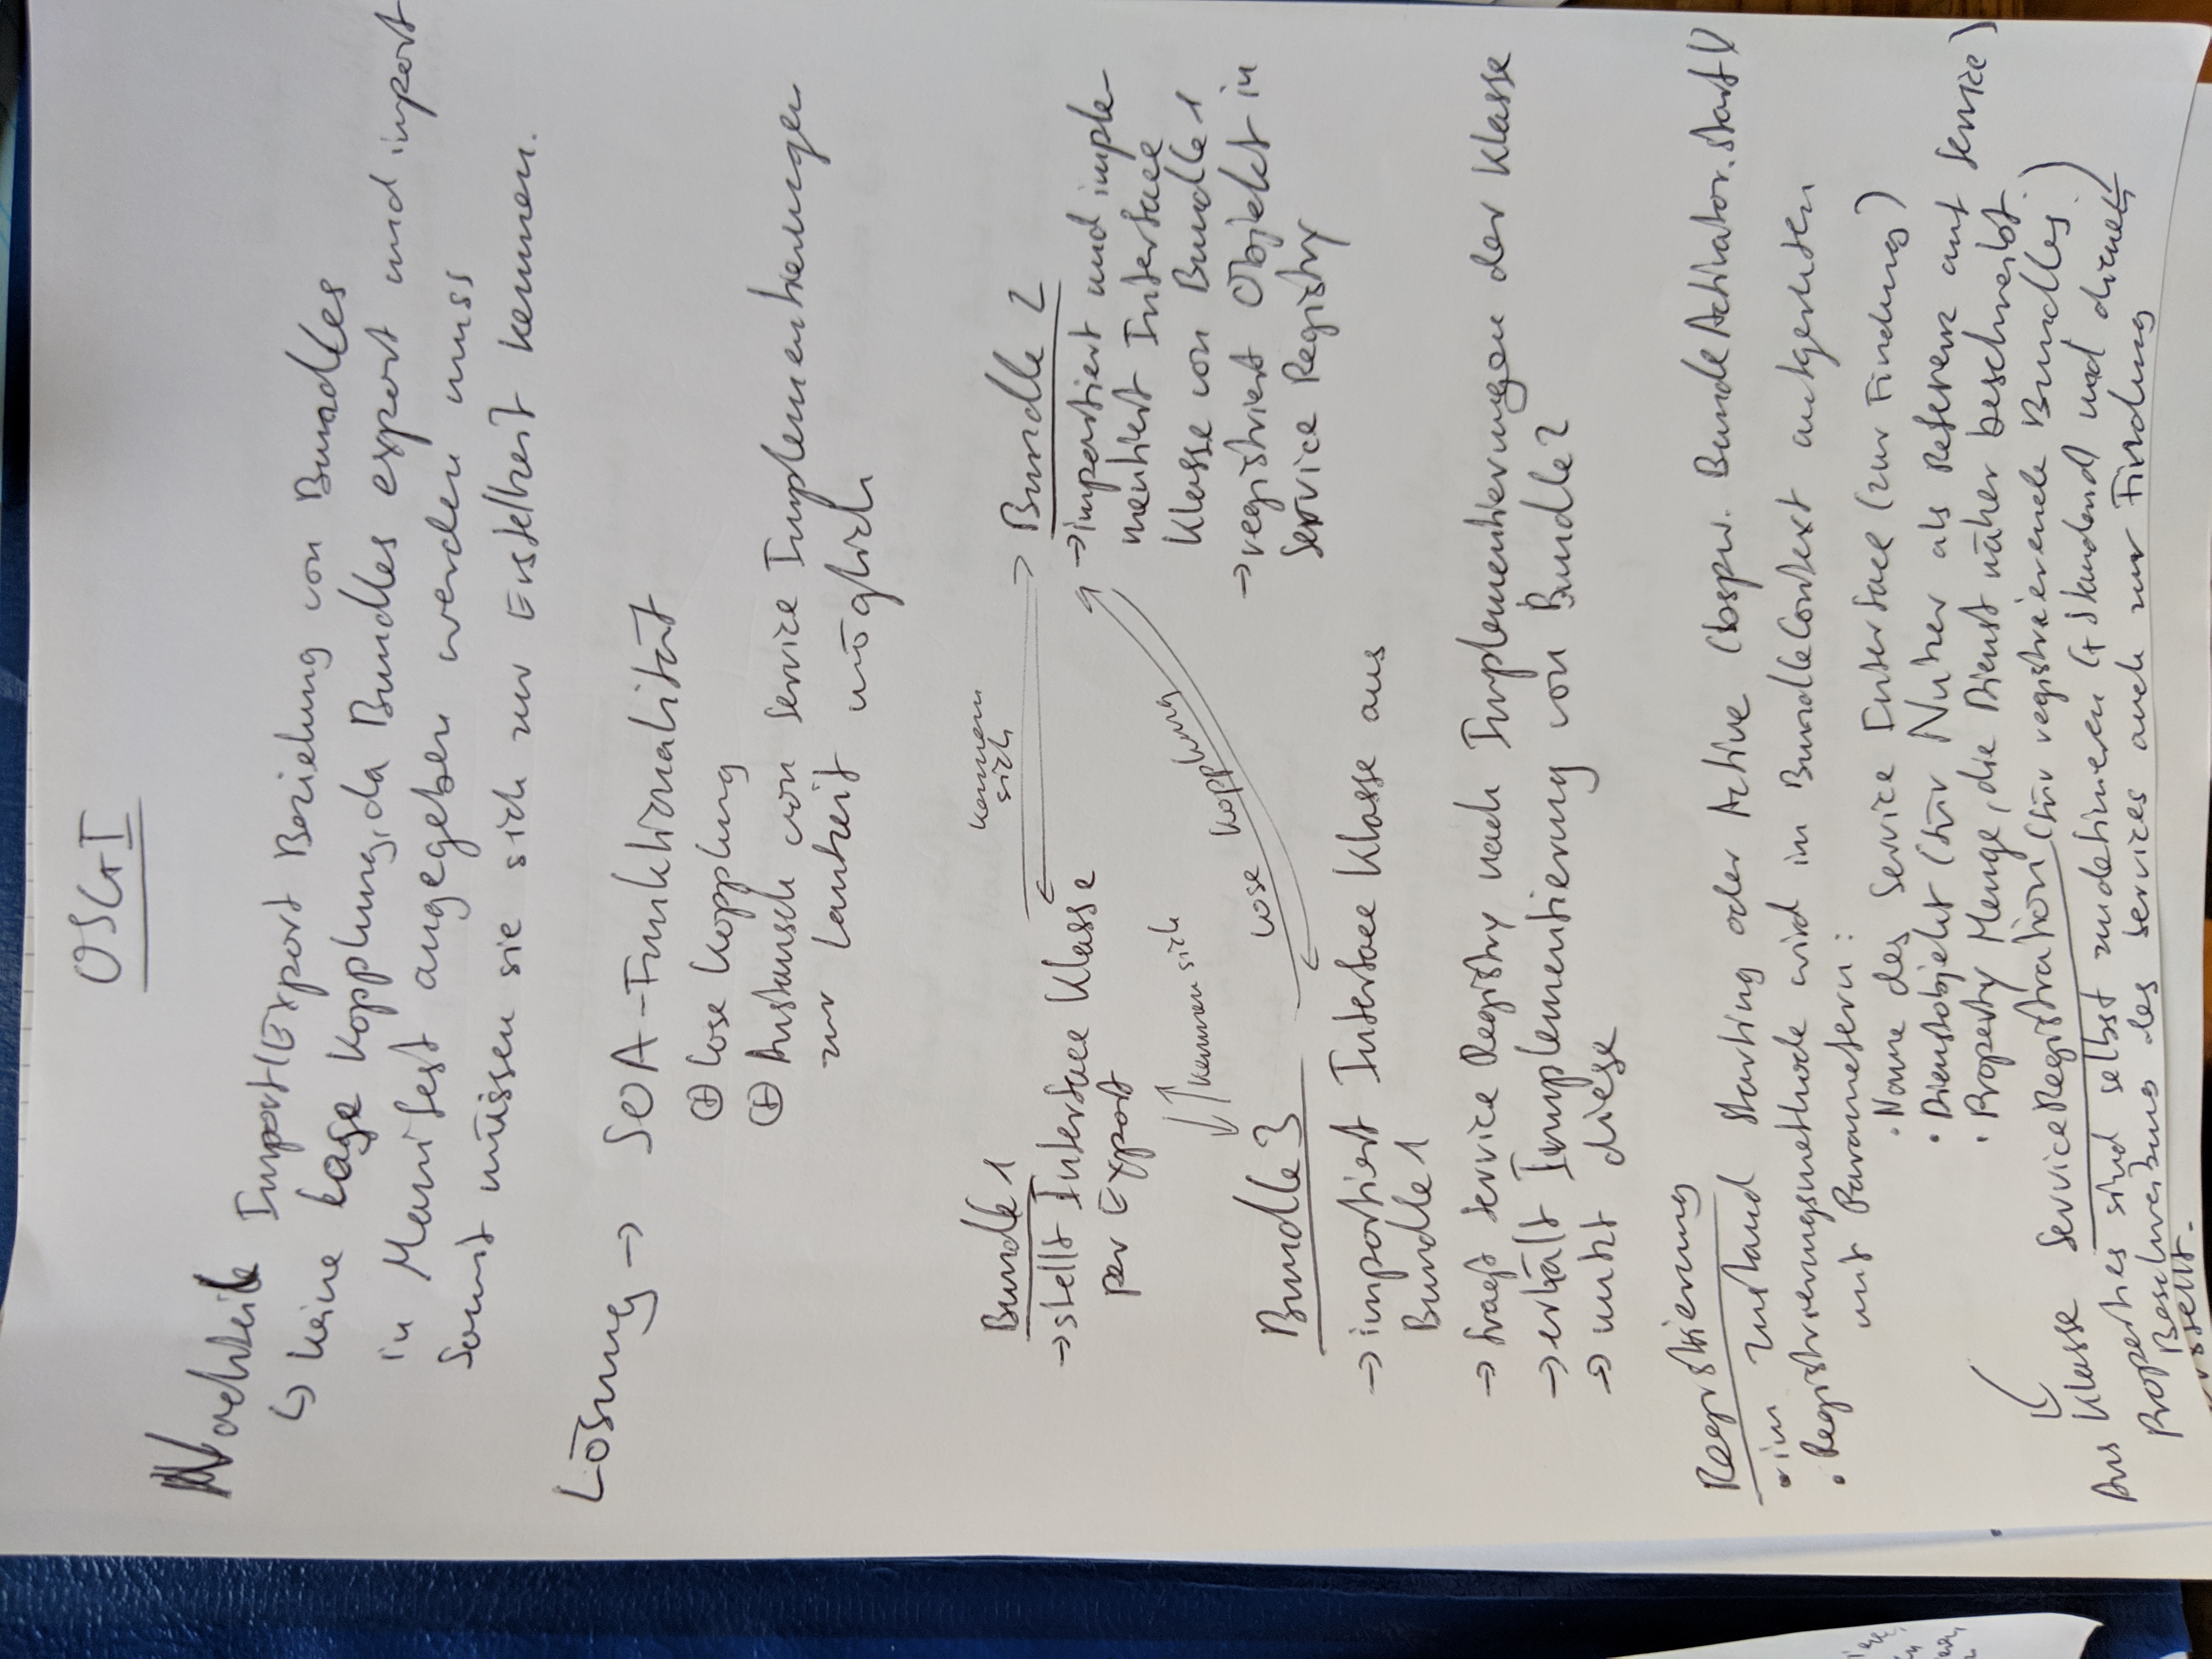 OSGI
Nachteile Import/Export Beziehung von Bundles
↳ keine lose Kopplung, da Bundles export und import
in Manifest angegeben werden muss
Somit müssen sie sich zur Erstellzeit kennen.
Lösung → SOA-Funktionalität
⊕ Lose Kopplung
⊕ Austausch von Service Implementierungen
zur Laufzeit möglich
Bundle 1
→ stellt Interface Klasse
per Export
kennen
sich
Bundle 2
→ importiert und imple-
mentiert Interface
Klasse von Bundle 1
→ registriert Objekt in
Service Registry
kennen sich
Lose Kopplung
Bundle 3
→ importiert Interface Klasse aus
Bundle 1
→ fragt Service Registry nach Implementierungen der Klasse
→ erhält Implementierung von Bundle 2
→ nutzt diese
Registrierung
• im Zustand Starting oder Active (bspw. BundleActivator.start())
• Registrierungsmethode wird in BundleContext aufgerufen
mit Parametern:
• Name des Service Interface (zur Findung)
• Dienstobjekt (für Nutzer als Referenz auf Service)
• Property Menge, die Dienst näher beschreibt
Klasse ServiceRegistration (für registrierende Bundles)
Aus Properties sind selbst zu definieren (+ Standard) und dienen
Beschreibung des Services auch zur Findung